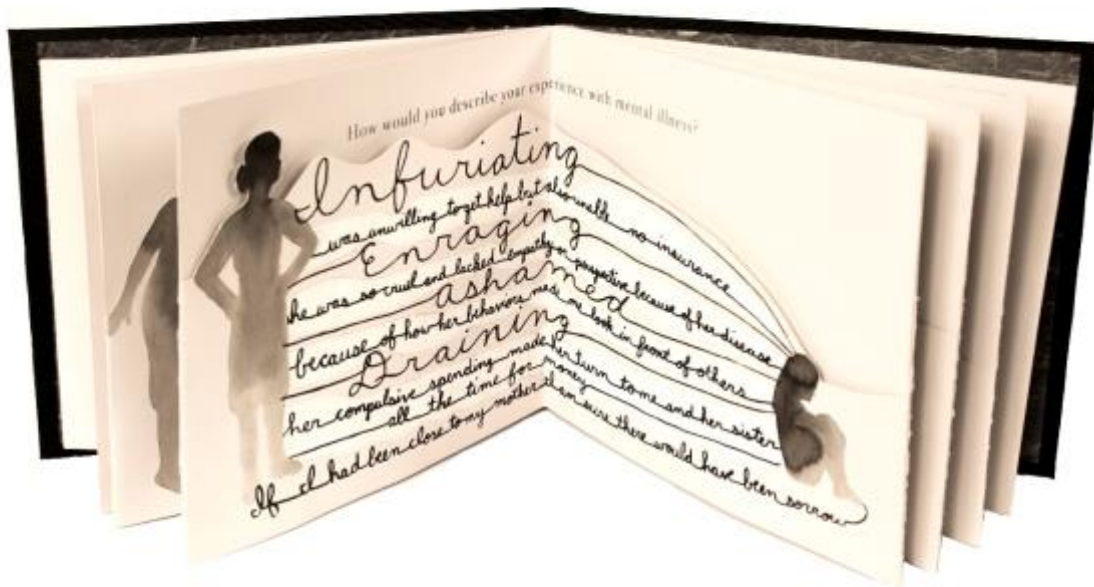 How would you describe your experience with mental illness?
Infuriating
was unwilling to get help but also unable no insurance
Enraging
he was so cruel and lacked empathy or perspective because of her disease
ashamed
because of how her behaviors made me look in front of others
Draining
her compulsive spending made her turn to me and her sister
all the time for money
If I had been close to my mother then sure there would have been sorrow